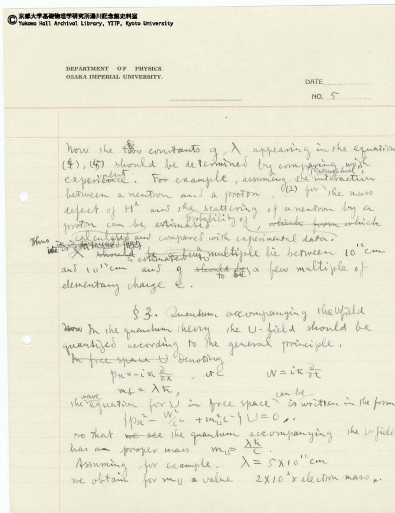 京都大学基礎物理学研究所湯川記念館史料室
©Yukawa Hall Archival Library, YITP, Kyoto University
DEPARTMENT OF PHYSICS
OSAKA IMPERIAL UNIVERSITY.
DATE
NO. 5
Now the two constants g, λ appearing in the equation
(4), (4') should be determined by comparing with
experiment. For example, assuming the interaction
between a neutron and a proton, (2) for the mass
defect of H² and the scattering of a neutron by a
probability of
proton can be estimated which from which
calculated and compared with experimental data.
Thus λ should be a few multiple lie between 10¹² cm
estimated to
and 10¹³ cm and g should be a few multiples of
to be
elementary charge e.
§3. Quantum accompanying the U-field
Now In the quantum theory the U-field should be
quantized according to the general principle.
In free space U denoting
pₓ = -iħ ∂/∂x, etc W = iħ ∂/∂t
m_U c = λħ,
wave can be
the equation for U in free space is written in the form
{p² - W²/c² + m_U² c²} U = 0,
so that we see the quantum accompanying the U-field
has a proper mass m_U = λħ/c.
Assuming for example. λ = 5×10¹² cm
we obtain for m_U a value 2×10² × electron mass.